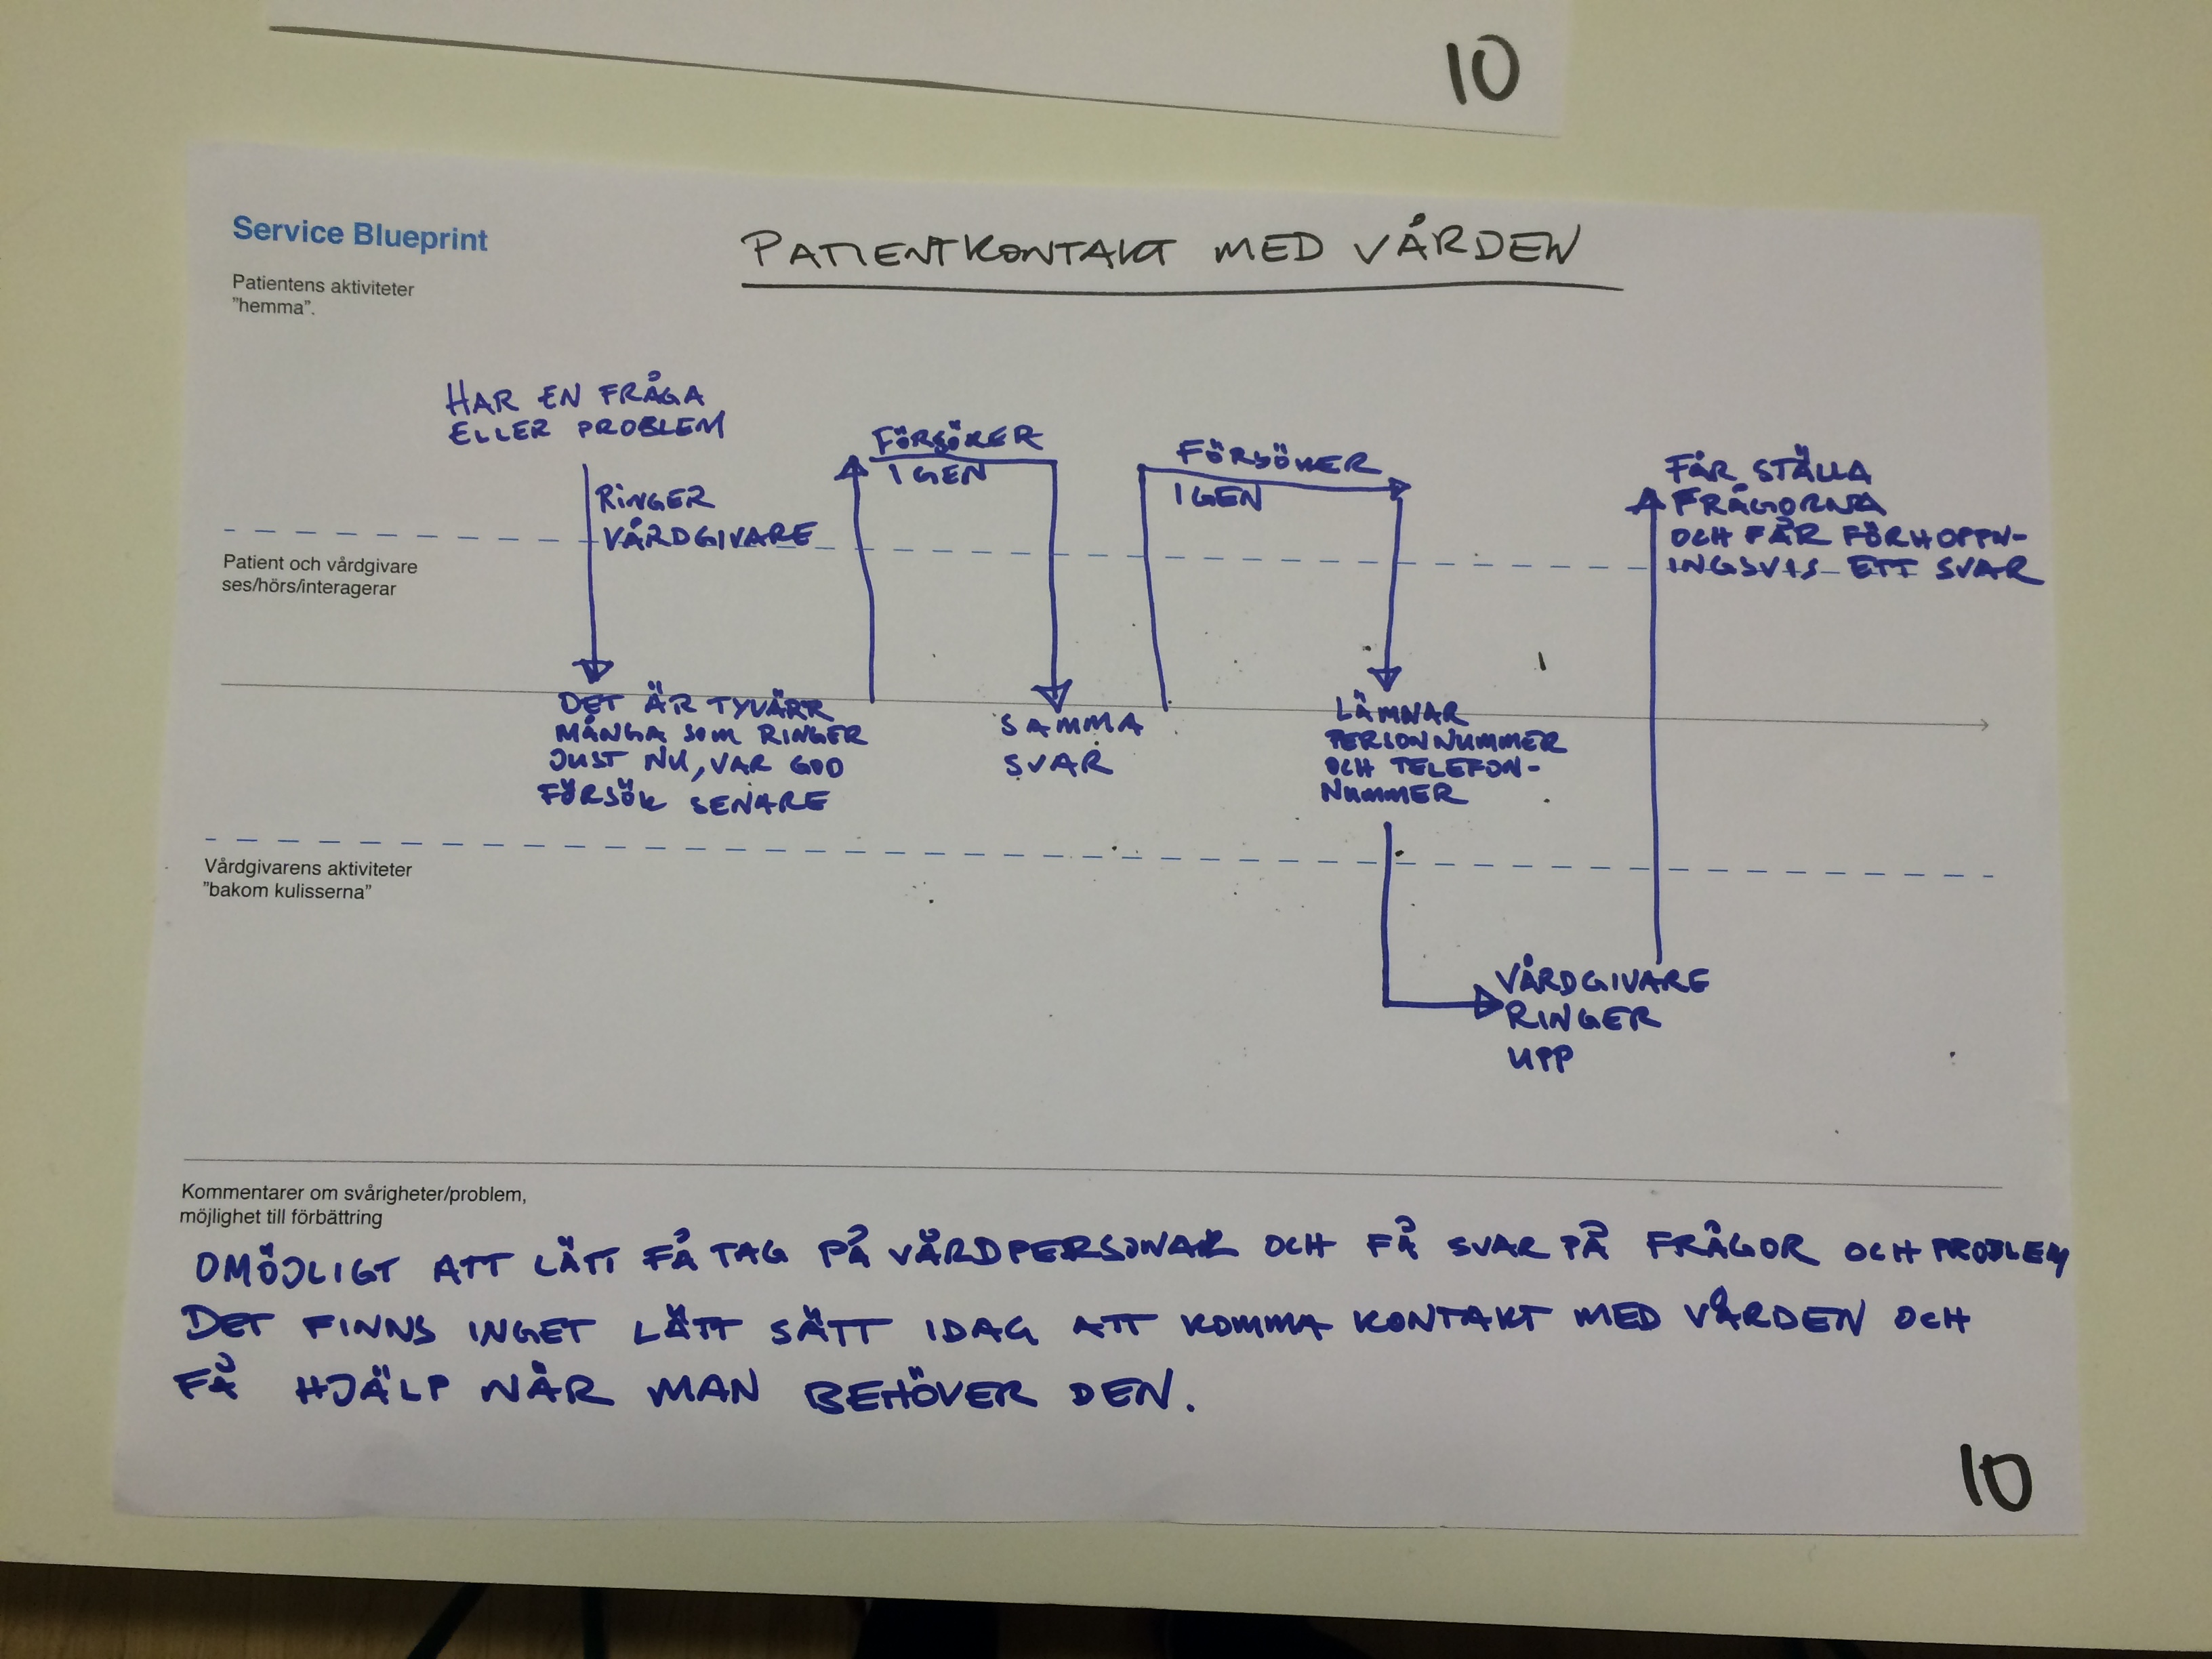 10
Service Blueprint
PATIENTKONTAKT MED VÅRDEN
Patientens aktiviteter
"hemma".
HAR EN FRÅGA
ELLER PROBLEM
RINGER
VÅRDGIVARE
FÖRSÖKER
IGEN
FÖRSÖKER
IGEN
FÅR STÄLLA
FRÅGORNA
OCH FÅR FÖRHOPPN-
INGSVIS ETT SVAR
Patient och vårdgivare
ses/hörs/interagerar
DET ÄR TYVÄRR
MÅNGA SOM RINGER
JUST NU, VAR GOD
FÖRSÖK SENARE
SAMMA
SVAR
LÄMNAR
PERSONNUMMER
OCH TELEFON-
NUMMER
Vårdgivarens aktiviteter
"bakom kulisserna"
VÅRDGIVARE
RINGER
UPP
Kommentarer om svårigheter/problem,
möjlighet till förbättring
OMÖJLIGT ATT LÄTT FÅ TAG PÅ VÅRDPERSONAL OCH FÅ SVAR PÅ FRÅGOR OCH PROBLEM
DET FINNS INGET LÄTT SÄTT IDAG ATT KOMMA KONTAKT MED VÅRDEN OCH
FÅ HJÄLP NÄR MAN BEHÖVER DEN.
10